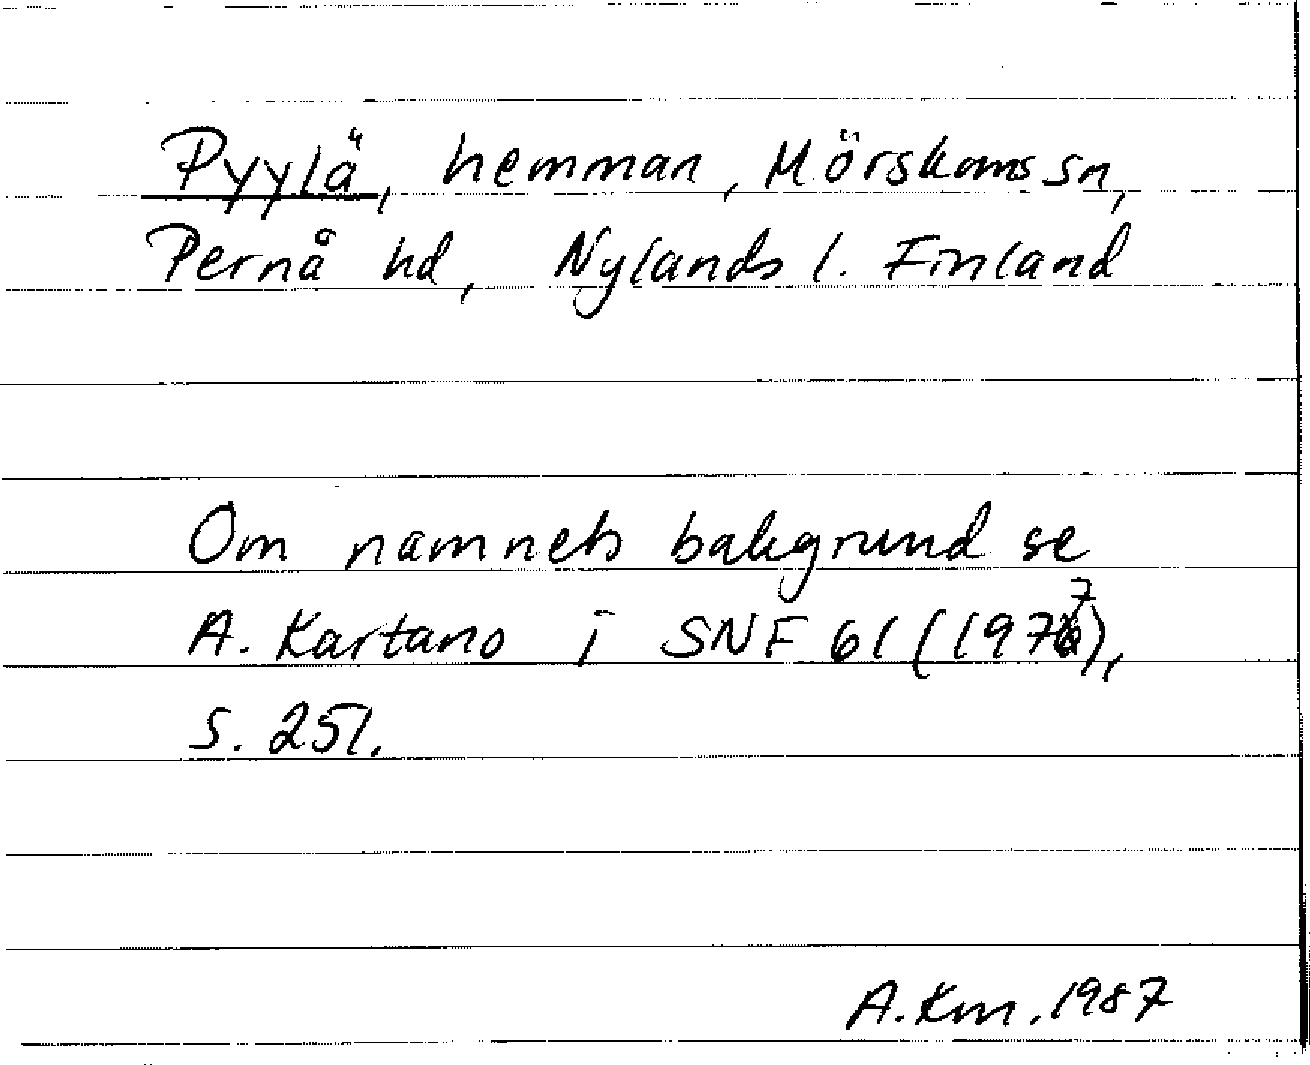 Pyylä, hemman, Mörskoms sn,
Pernå hd, Nylands l. Finland
Om namnets bakgrund se
A. Kartano i SNF 61 (1977),
S. 251.
A. Km. 1987